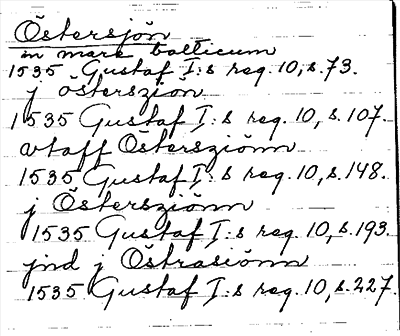 Östersjön
in mare balticum
1535 Gustaf I:s reg. 10, s. 73.
j österszion
1535 Gustaf I:s reg. 10, s. 107.
vtaff Östersziönn
1535 Gustaf I:s reg. 10, s. 148.
j Östersziönn
1535 Gustaf I:s reg. 10, s. 193
jnd j Östrasiönn
1535 Gustaf I:s reg. 10, s. 227.